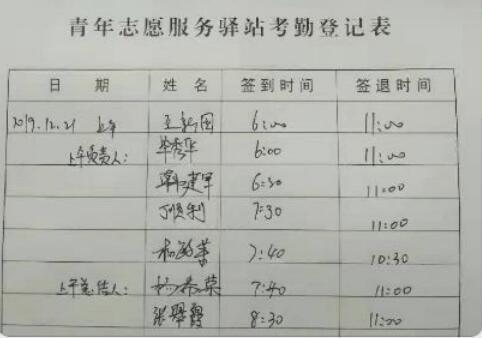 青年志愿服务驿站考勤登记表
日 期 姓 名 签到时间 签退时间
2019.12.21 上午 王新国 6:00 11:00
上午负责人: 毕秀华 6:00 11:00
建军 6:30 11:00
丁顺利 7:30 11:00
杨 7:40 10:30
上午总结人: 杨春荣 7:40 11:00
张翠霞 8:30 11:00